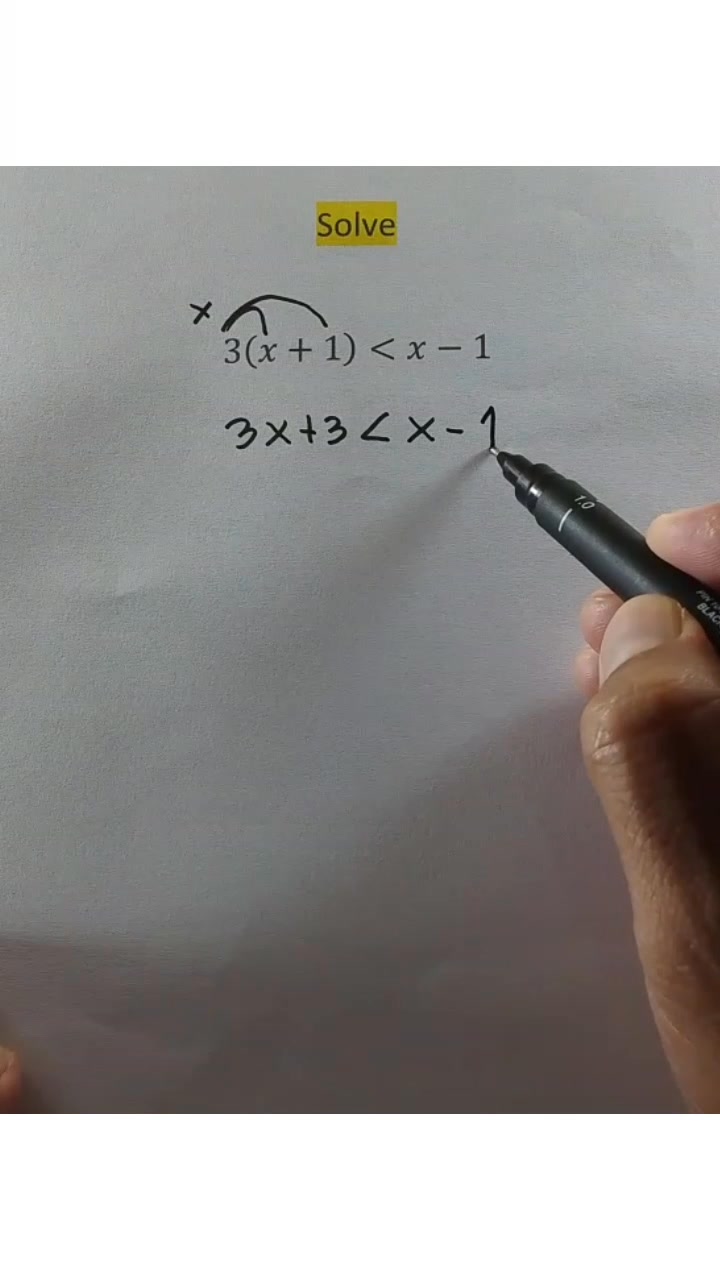 Solve
×
3(x + 1) < x − 1
3x+3 < x - 1
1.0